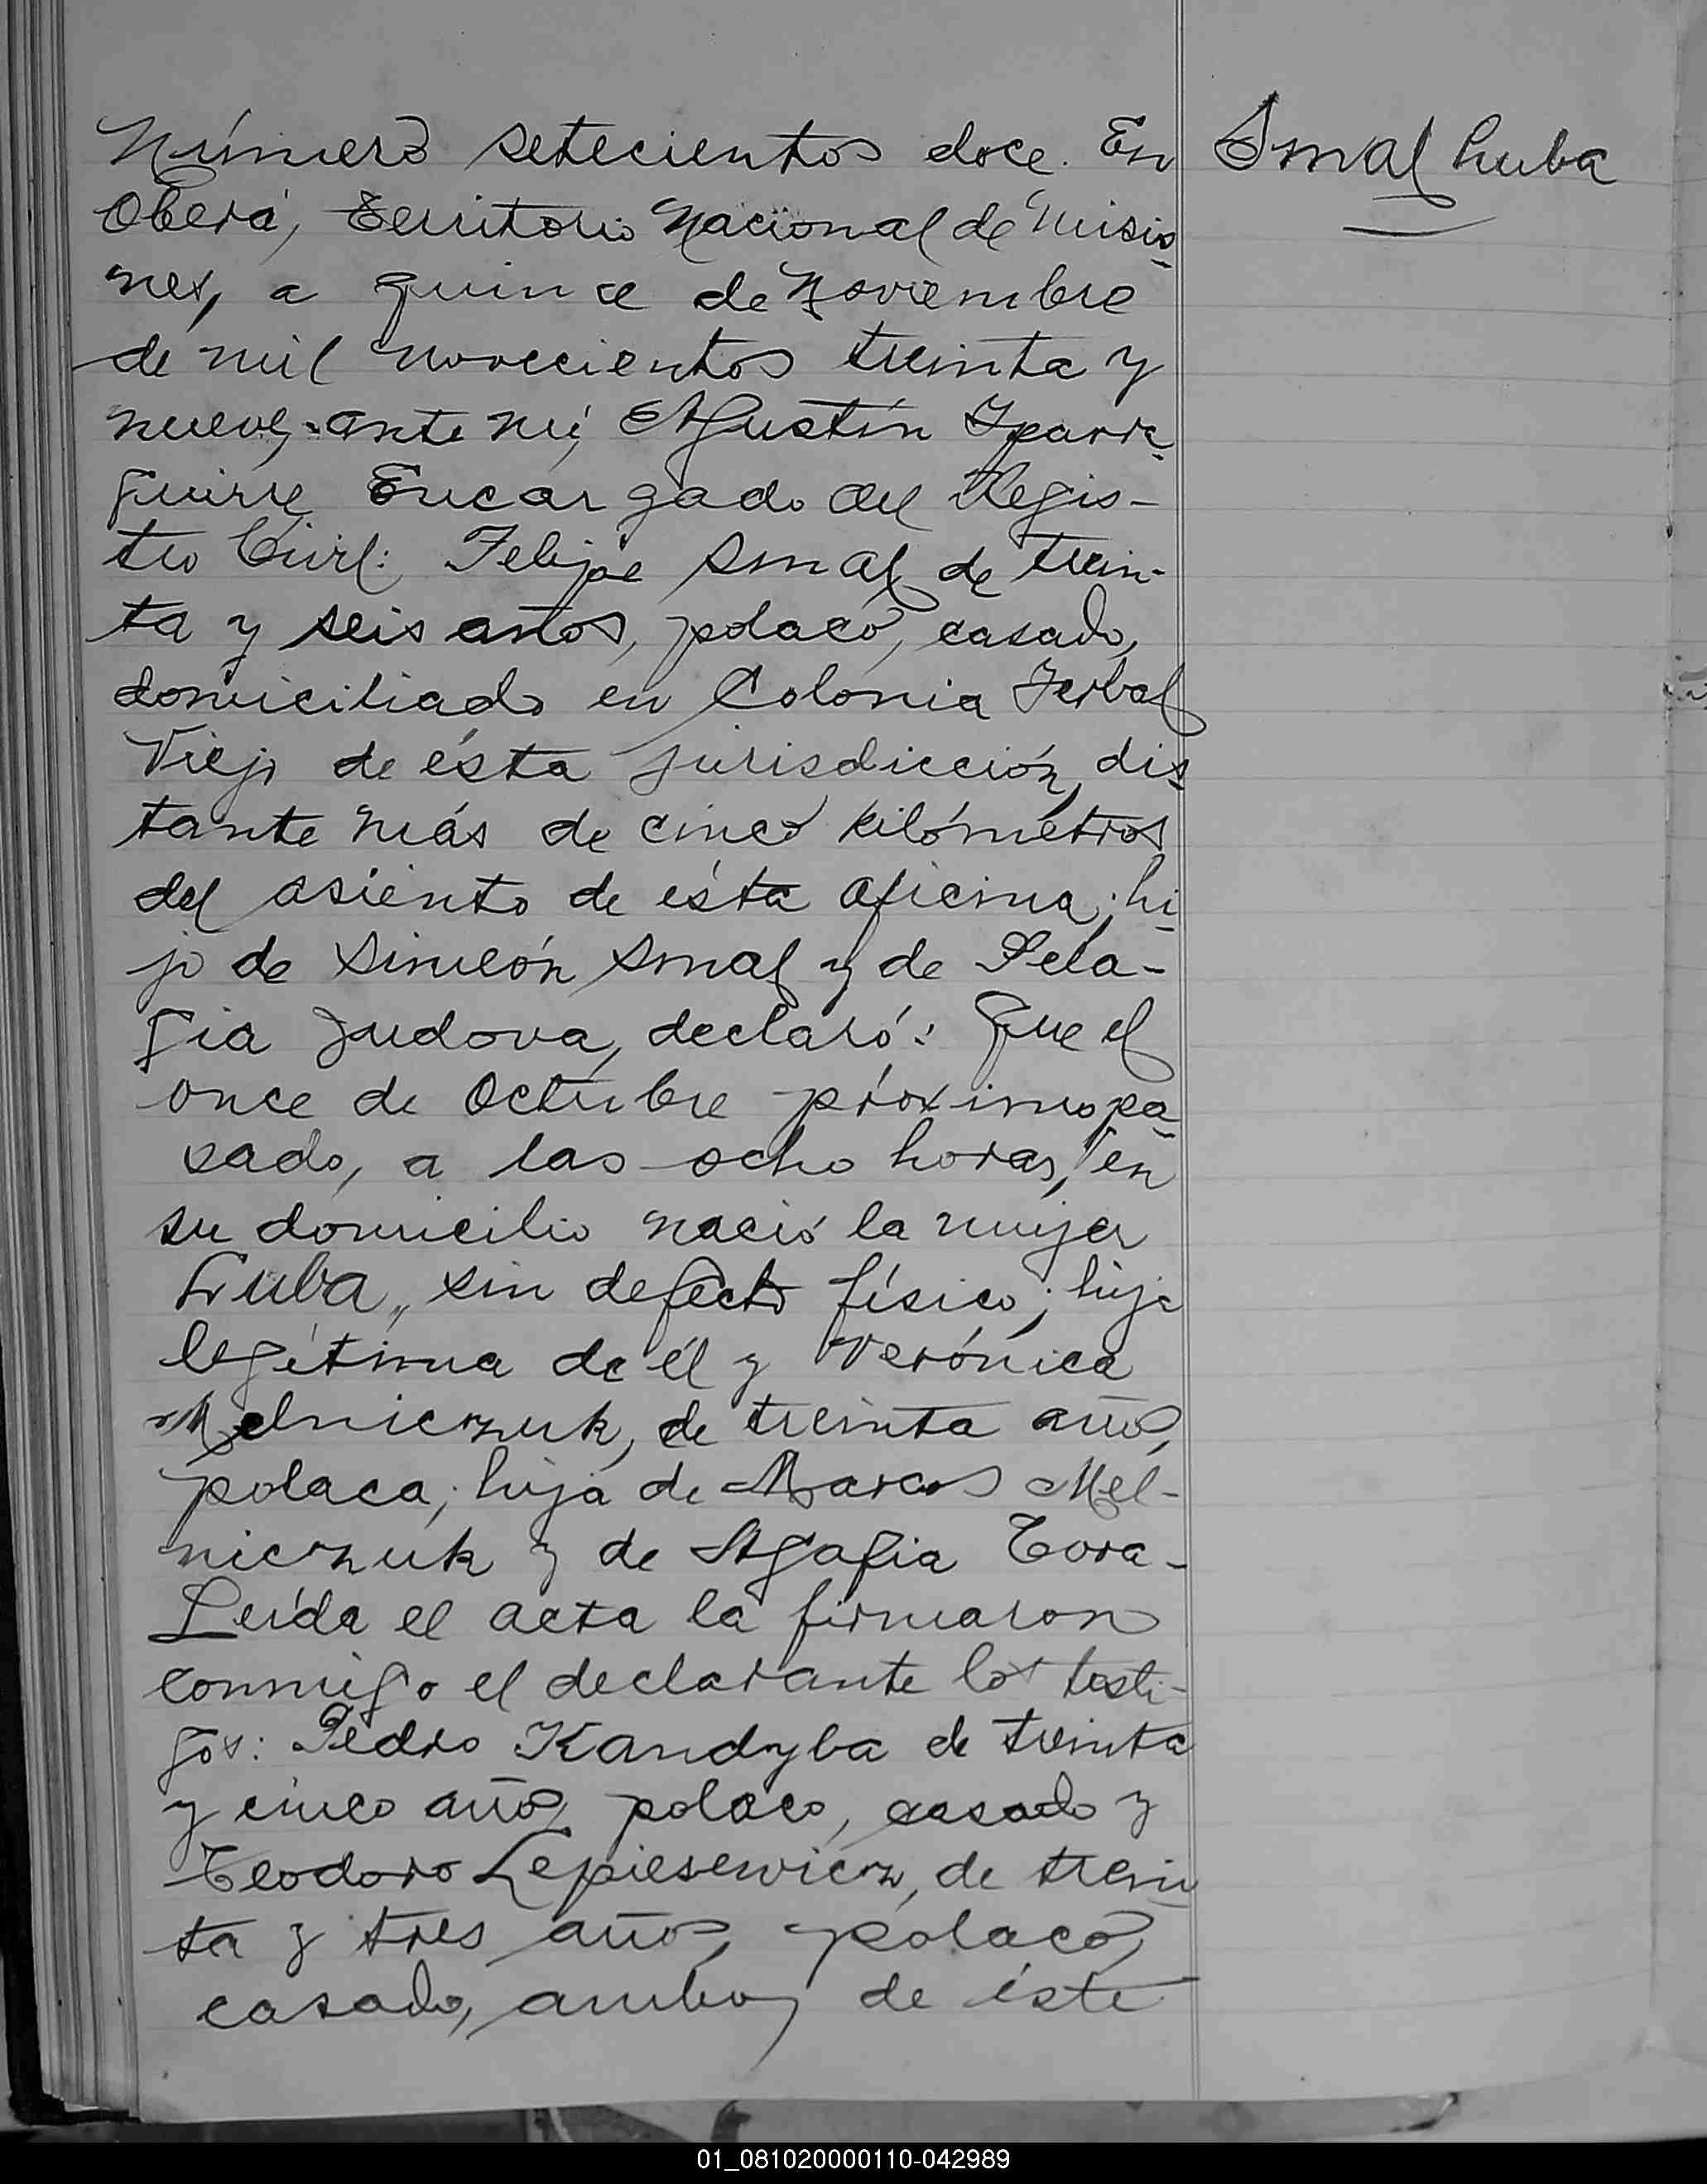 Número setecientos doce. En
Smal Luba
Oberá, Territorio Nacional de Misio-
nes, a quince de Noviembre
de mil novecientos treinta y
nueve, ante mí, Agustín Yparra-
guirre Encargado del Regis-
tro Civil: Felipe Smal de trein-
ta y seis años, polaco, casado,
domiciliado en Colonia Yerbal
Viejo de ésta jurisdicción, dis-
tante más de cinco kilómetros
del asiento de ésta oficina; hi-
jo de Simeón Smal y de Pela-
gia Judova, declaró: Que el
once de Octubre próximo pa-
sado, a las ocho horas, en
su domicilio nació la mujer
Luba, sin defecto físico; hija
legítima de él y Verónica
Melniczuk, de treinta años,
polaca; hija de Marcos Mel-
niczuk y de Agafia Cora-
Leída el acta la firmaron
conmigo el declarante los testi-
gos: Pedro Kandyba de treinta
y cinco años, polaco, casado y
Teodoro Lepiesewicz, de trein-
ta y tres años, polaco,
casado, ambos de éste
01_081020000110-042989